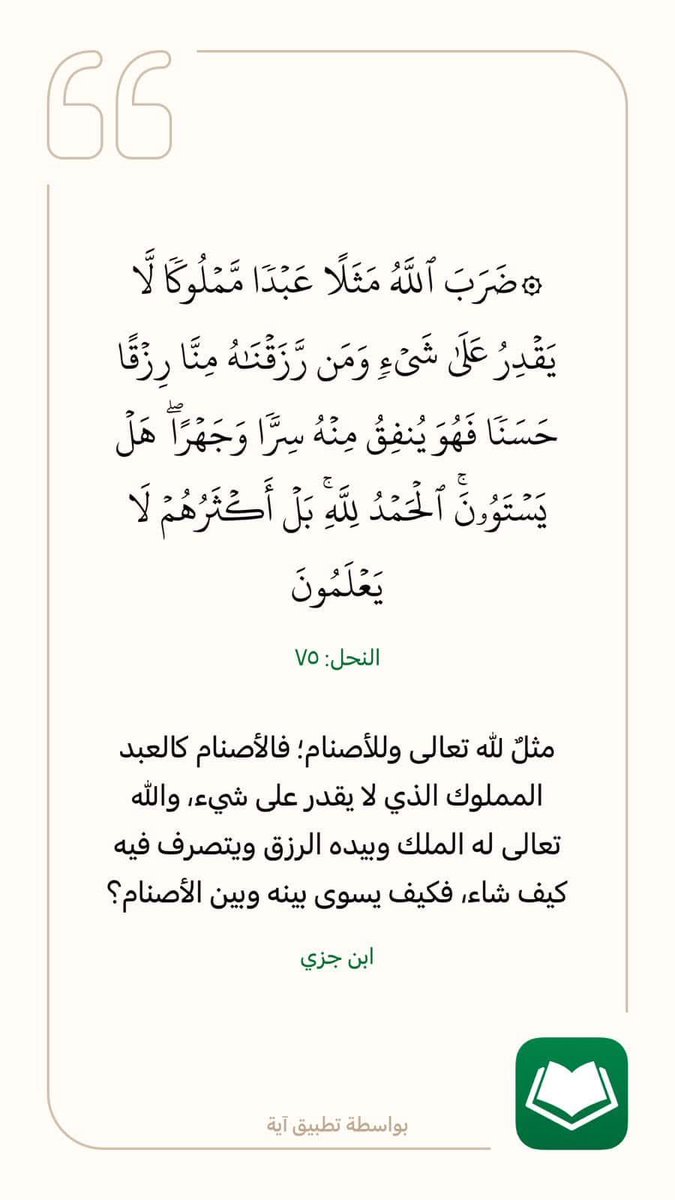 ۞ ضَرَبَ ٱللَّهُ مَثَلًا عَبۡدٗا مَّمۡلُوكٗا لَّا
يَقۡدِرُ عَلَىٰ شَيۡءٖ وَمَن رَّزَقۡنَٰهُ مِنَّا رِزۡقًا
حَسَنٗا فَهُوَ يُنفِقُ مِنۡهُ سِرّٗا وَجَهۡرًاۖ هَلۡ
يَسۡتَوُۥنَۚ ٱلۡحَمۡدُ لِلَّهِۚ بَلۡ أَكۡثَرُهُمۡ لَا
يَعۡلَمُونَ
النحل: ٧٥
مثلٌ لله تعالى وللأصنام؛ فالأصنام كالعبد
المملوك الذي لا يقدر على شيء، والله
تعالى له الملك وبيده الرزق ويتصرف فيه
كيف شاء، فكيف يسوى بينه وبين الأصنام؟
ابن جزي
بواسطة تطبيق آية